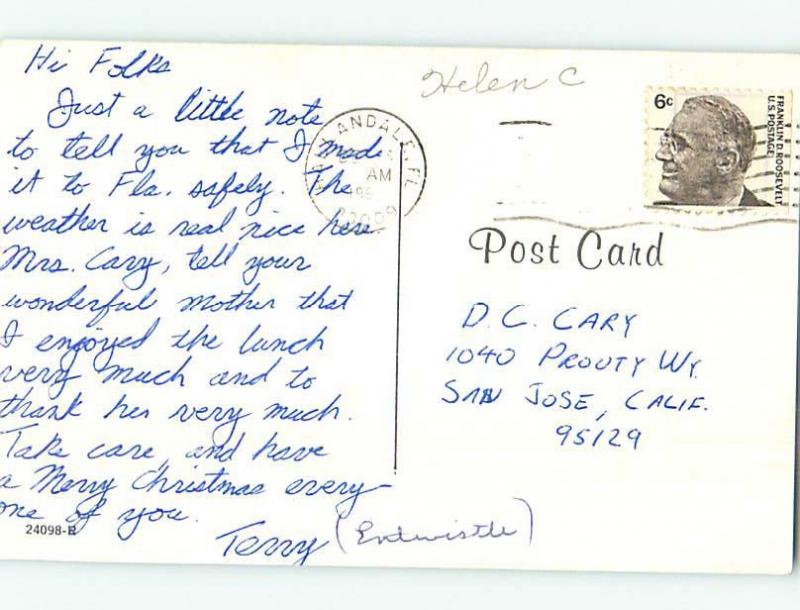 Hi Folks
Just a little note
to tell you that I made
it to Fla. safely. The
weather is real nice here
Mrs. Cary, tell your
wonderful mother that
I enjoyed the lunch
very much and to
thank her very much.
Take care, and have
a Merry Christmas every-
one of you.
Terry (Entwistle)
24098-B
Helen C
ANDALE, FL
AM
6c
FRANKLIN D. ROOSEVELT
U.S. POSTAGE
Post Card
D. C. CARY
1040 PROUTY WY.
SAN JOSE, CALIF.
95129